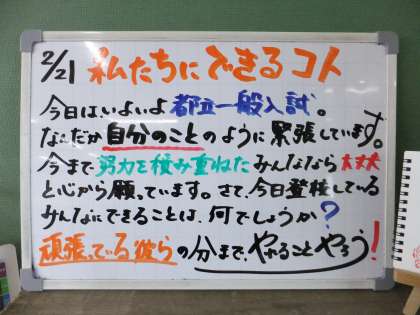 2/21 私たちにできるコト
今日はいよいよ都立一般入試。
なんだか自分のことのように緊張しています。
今まで努力を積み重ねたみんななら大丈夫
と心から願っています。さて、今日登校している
みんなにできることは、何でしょうか？
頑張っている彼らの分まで、やることやろう！